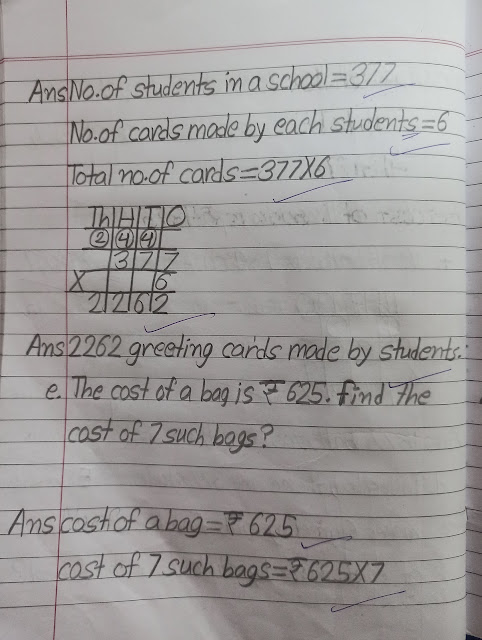 Ans No. of students in a school = 377
No. of cards made by each students = 6
Total no. of cards = 377X6
Th H T O
2 4 4
3 7 7
X 6
2 2 6 2
Ans 2262 greeting cards made by students.
e. The cost of a bag is ₹ 625. find the
cost of 7 such bags?
Ans cost of a bag = ₹ 625
cost of 7 such bags = ₹ 625X7